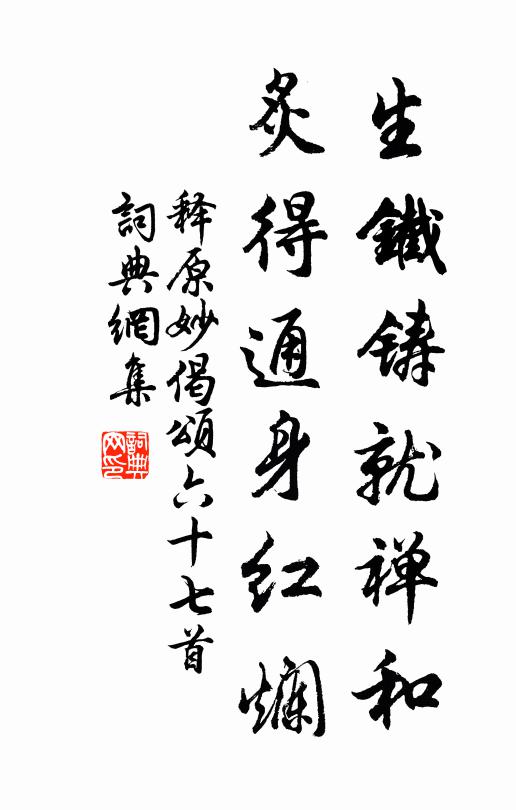 生鐵鋳就禅和
炙得通身红爛
释原妙偈頌六十七首
詞典網集
詞典网印